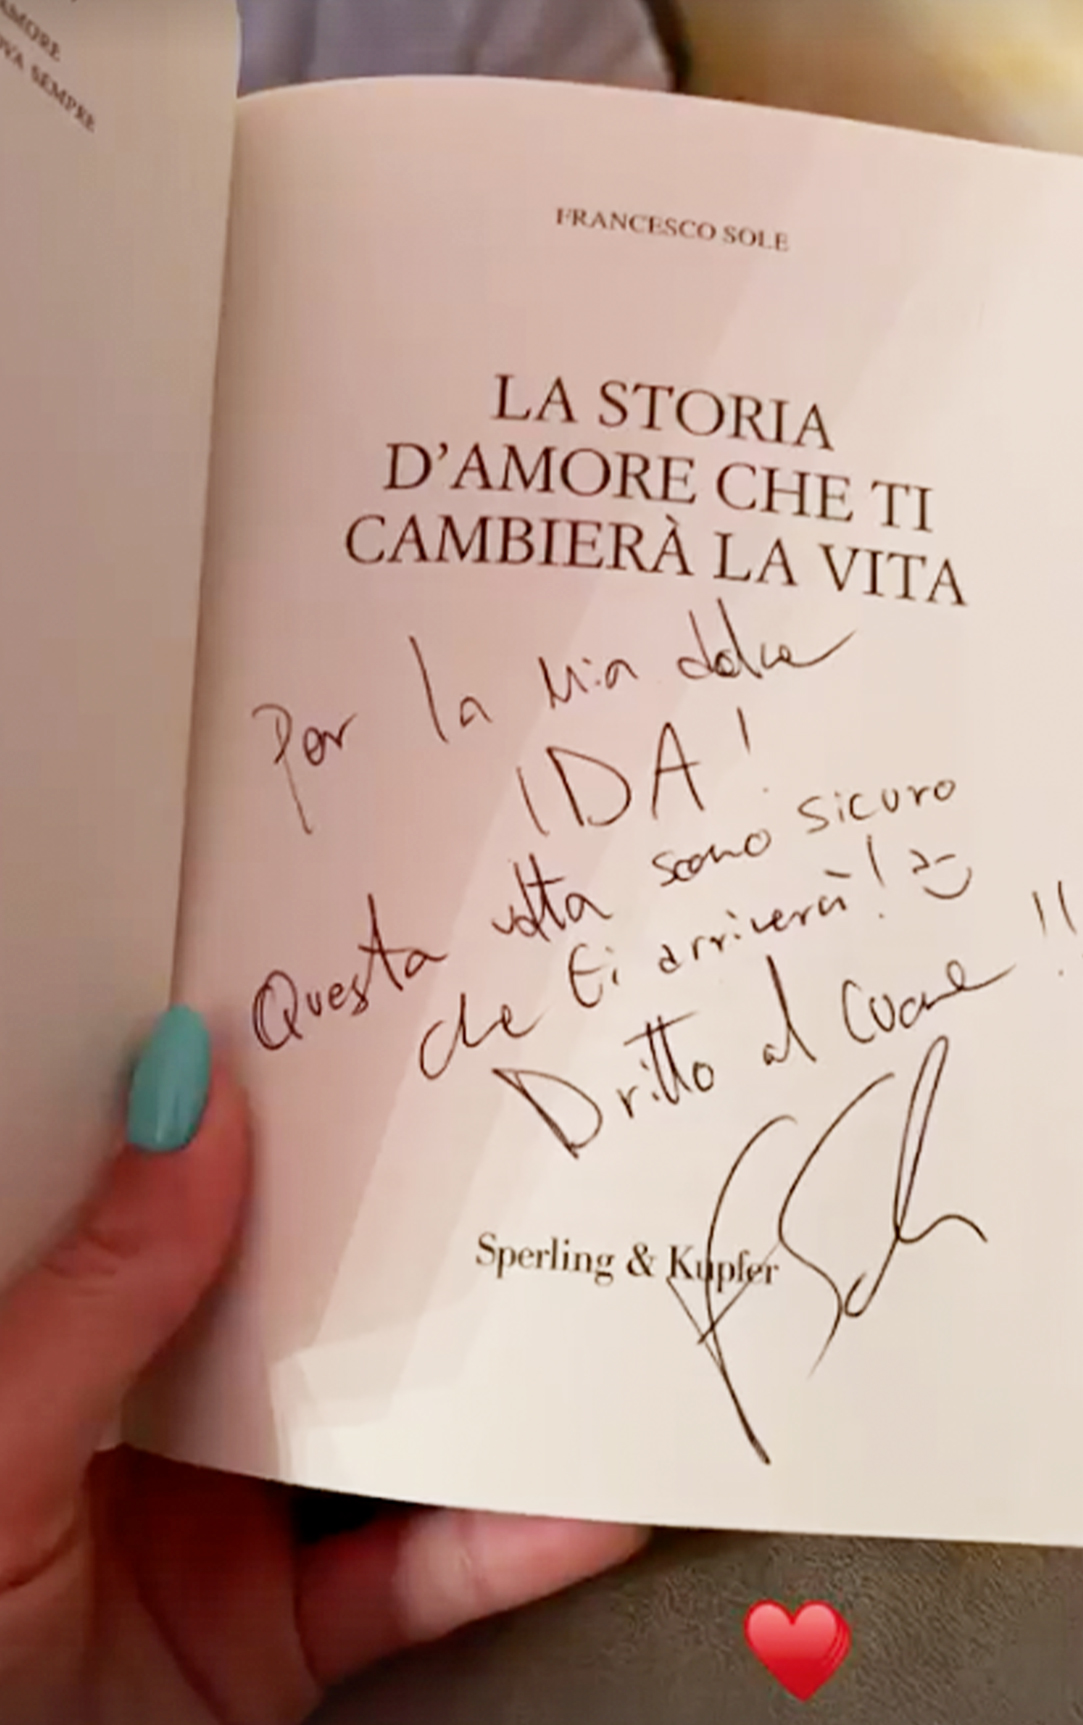 AMORE
OVA SEMPRE
FRANCESCO SOLE
LA STORIA
D'AMORE CHE TI
CAMBIERÀ LA VITA
Per la mia dolce
IDA!
Questa volta sono sicuro
che ti arriverà! :)
Dritto al cuore!!
F Sole
Sperling & Kupfer